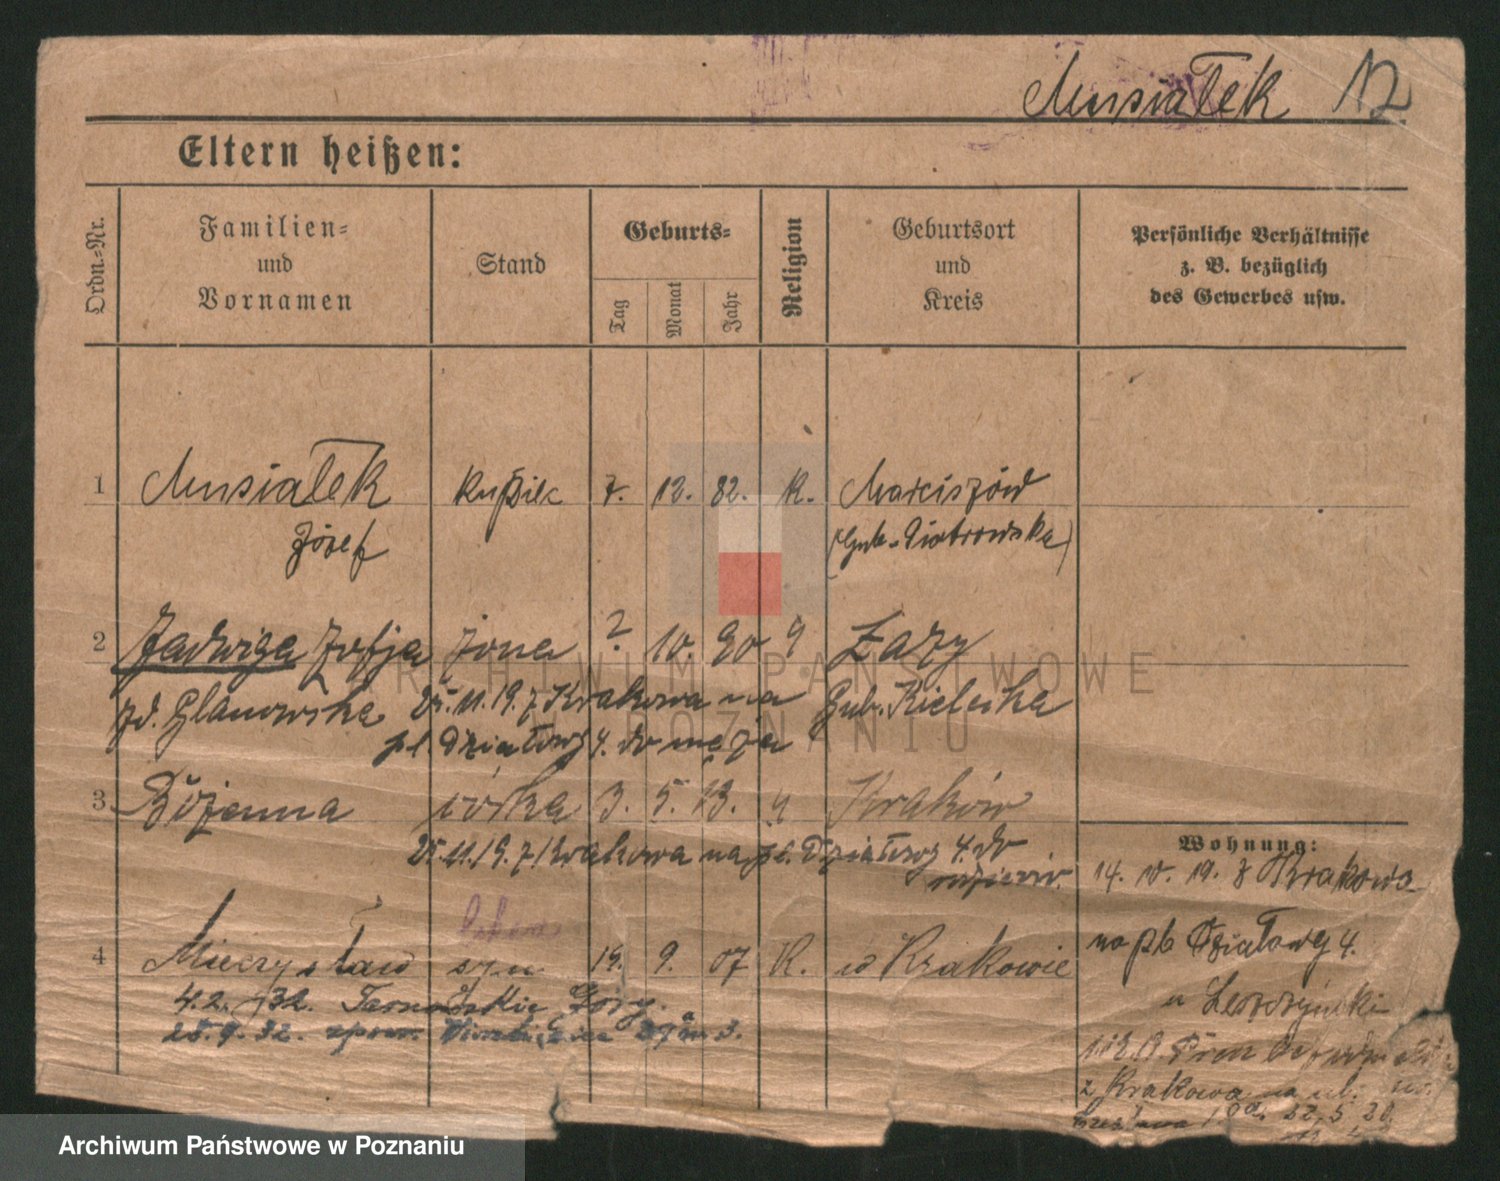 Musiałek 12
Eltern heißen:
Ordn.-Nr.
Familien-
und
Vornamen
Stand
Geburts-
Tag
Monat
Jahr
Religion
Geburtsort
und
Kreis
Persönliche Verhältnisse
z. B. bezüglich
des Gewerbes usw.
1 Musiałek kupiec 7. 12. 82. K. Marciszów
Józef (Gub. Piotrowska)
2 Jadwiga Zofja żona ? 10. 90 Żary
zd. Glanowska 25.11.19. z Krakowa na Gub. Kielecka
pl. Działowy 4. do męża
3 Bożenna córka 3. 5. 13. Kraków
25.11.19. z Krakowa na pl. Działowy 4. do
rodziców.
4 Mieczysław syn 19. 9. 07 K. w Krakowie
4.2.32. Tarnowskie Góry.
28.9.32. 3.
Wohnung:
14. 10. 19. z Krakowa
na pl. Działowy 4.
u
z Krakowa na ul.
22.5.20.
ARCHIWUM PAŃSTWOWE
W POZNANIU
Archiwum Państwowe w Poznaniu